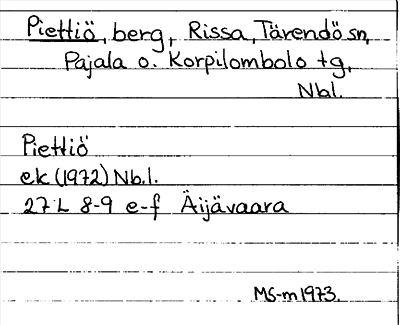 Piettiö, berg, Rissa, Tärendö sn,
Pajala o. Korpilombolo tg,
Nbl.
Piettiö
ek (1972) Nb.l.
27 L 8-9 e-f Äijävaara
MS-m 1973.